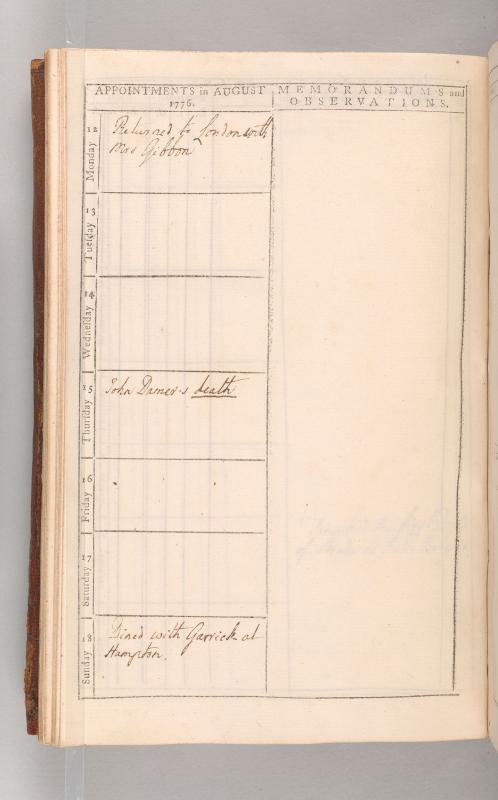 APPOINTMENTS in AUGUST
1776.
MEMORANDUMS and
OBSERVATIONS.
12
Monday
Returned to London with
Mrs Gibbon
13
Tueſday
14
Wedneſday
15
Thurſday
John Damer's death
16
Friday
17
Saturday
18
Sunday
Dined with Garrick at
Hampton.